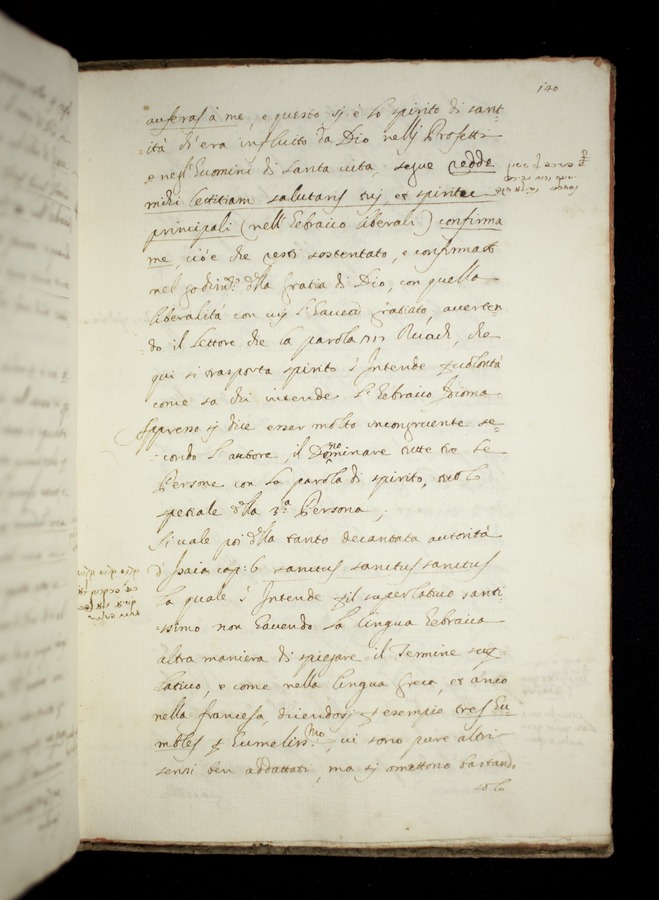 140
auferas à me, e questo si è lo spirito di sant-
ità ch'era influito da Dio nelli Profetti
e negl'huomini di santa vita, segue redde
mihi letitiam salutaris tui, et spiritu
principali (nell'hebraico liberali) confirma
me, cioè che resti sostentato, e confirmato
nel godim.to della gratia di Dio, con quella
liberalità con cui l'haveva gratiato, averten
do il lettore che la parola רוח Rúach, che
qui si trasporta spirito s'intende volontà
come sa chi intende l'hebraico Idioma
Appresso si dice esser molto incongruente se-
condo l'autore, il Dominare tutte tre le
no
Persone con la parola di spirito, titolo
spetiale della 3.a Persona,
Si vale poi della tanto decantata autorità
d'Isaia cap: 6 sanctus sanctus sanctus
קדוש קדוש קדוש
la quale s'intende il superlativo santi-
ssimo non havendo la lingua hebraica
altra maniera di spiegare il Termine
lativo, e come nella lingua greca, et anco
nella francesa, dicendosi esempio tres hu
mbles humeliss.mo, vi sono pure altri
sensi ben addattati, ma si omettono bastando
solo